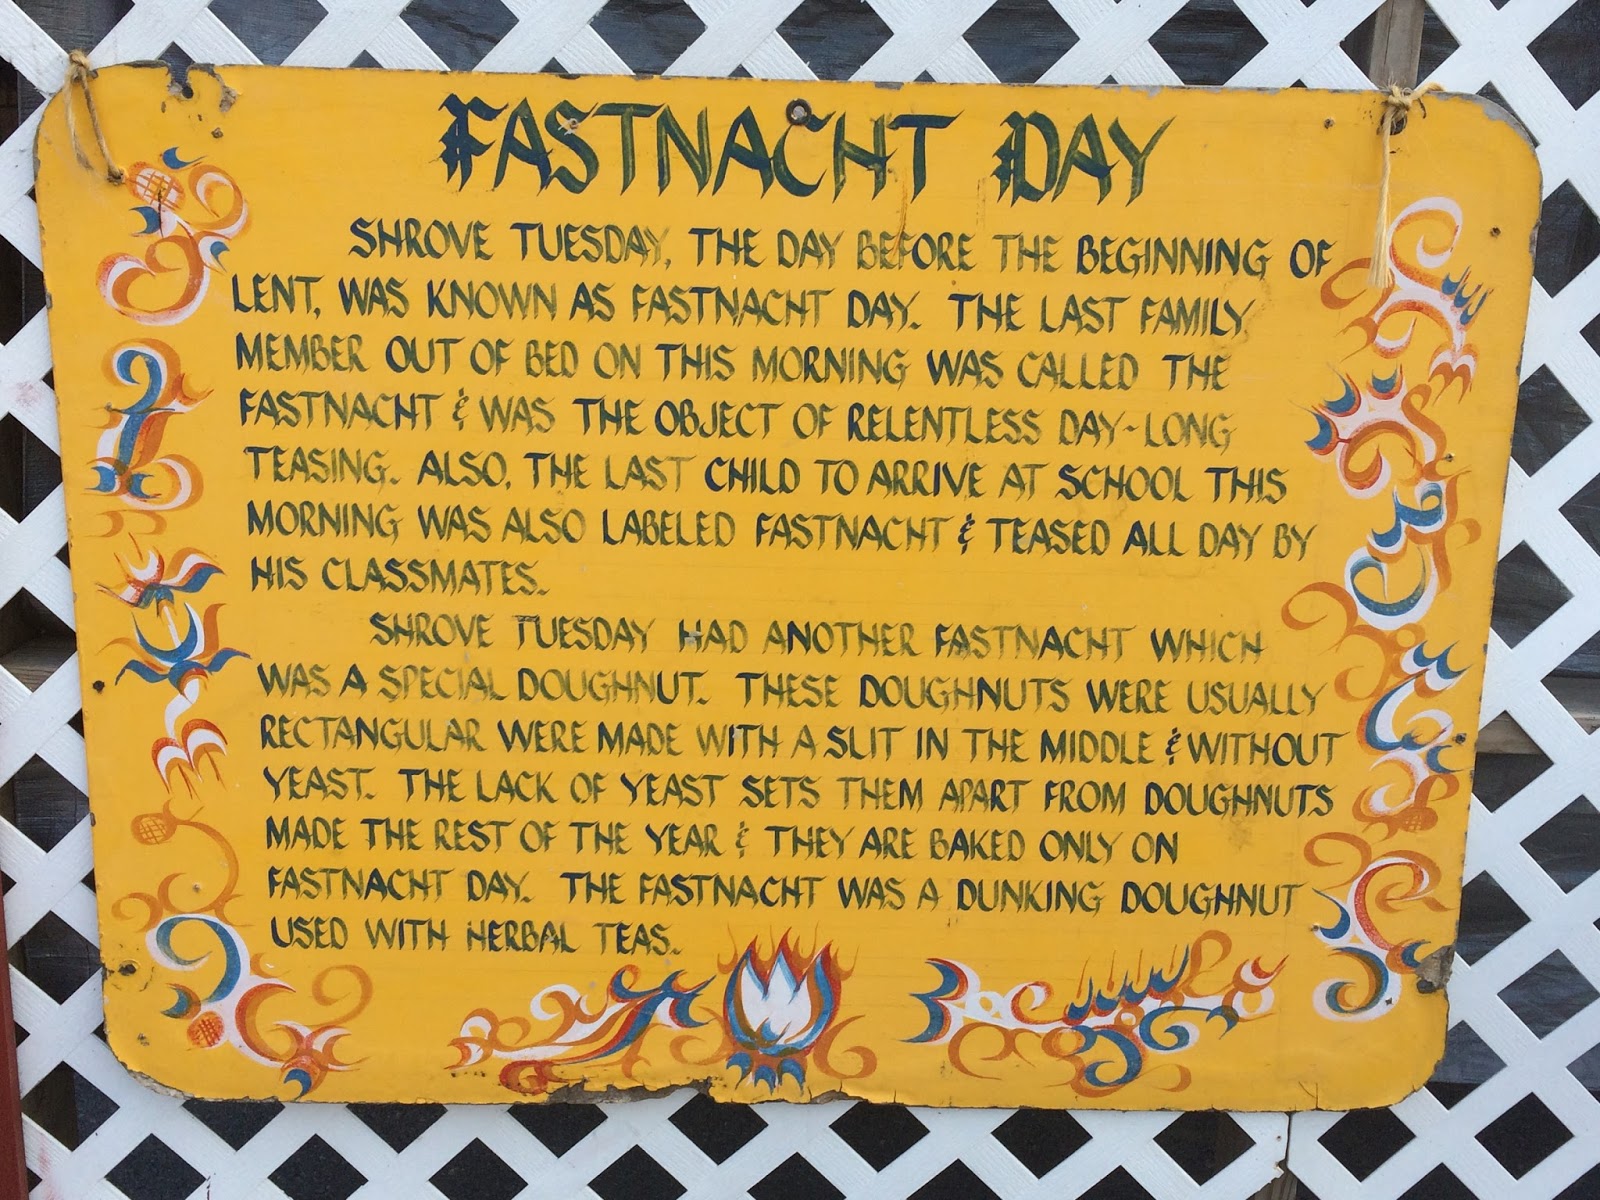 FASTNACHT DAY
SHROVE TUESDAY, THE DAY BEFORE THE BEGINNING OF
LENT, WAS KNOWN AS FASTNACHT DAY. THE LAST FAMILY
MEMBER OUT OF BED ON THIS MORNING WAS CALLED THE
FASTNACHT & WAS THE OBJECT OF RELENTLESS DAY-LONG
TEASING. ALSO, THE LAST CHILD TO ARRIVE AT SCHOOL THIS
MORNING WAS ALSO LABELED FASTNACHT & TEASED ALL DAY BY
HIS CLASSMATES.
SHROVE TUESDAY HAD ANOTHER FASTNACHT WHICH
WAS A SPECIAL DOUGHNUT. THESE DOUGHNUTS WERE USUALLY
RECTANGULAR WERE MADE WITH A SLIT IN THE MIDDLE & WITHOUT
YEAST. THE LACK OF YEAST SETS THEM APART FROM DOUGHNUTS
MADE THE REST OF THE YEAR & THEY ARE BAKED ONLY ON
FASTNACHT DAY. THE FASTNACHT WAS A DUNKING DOUGHNUT
USED WITH HERBAL TEAS.